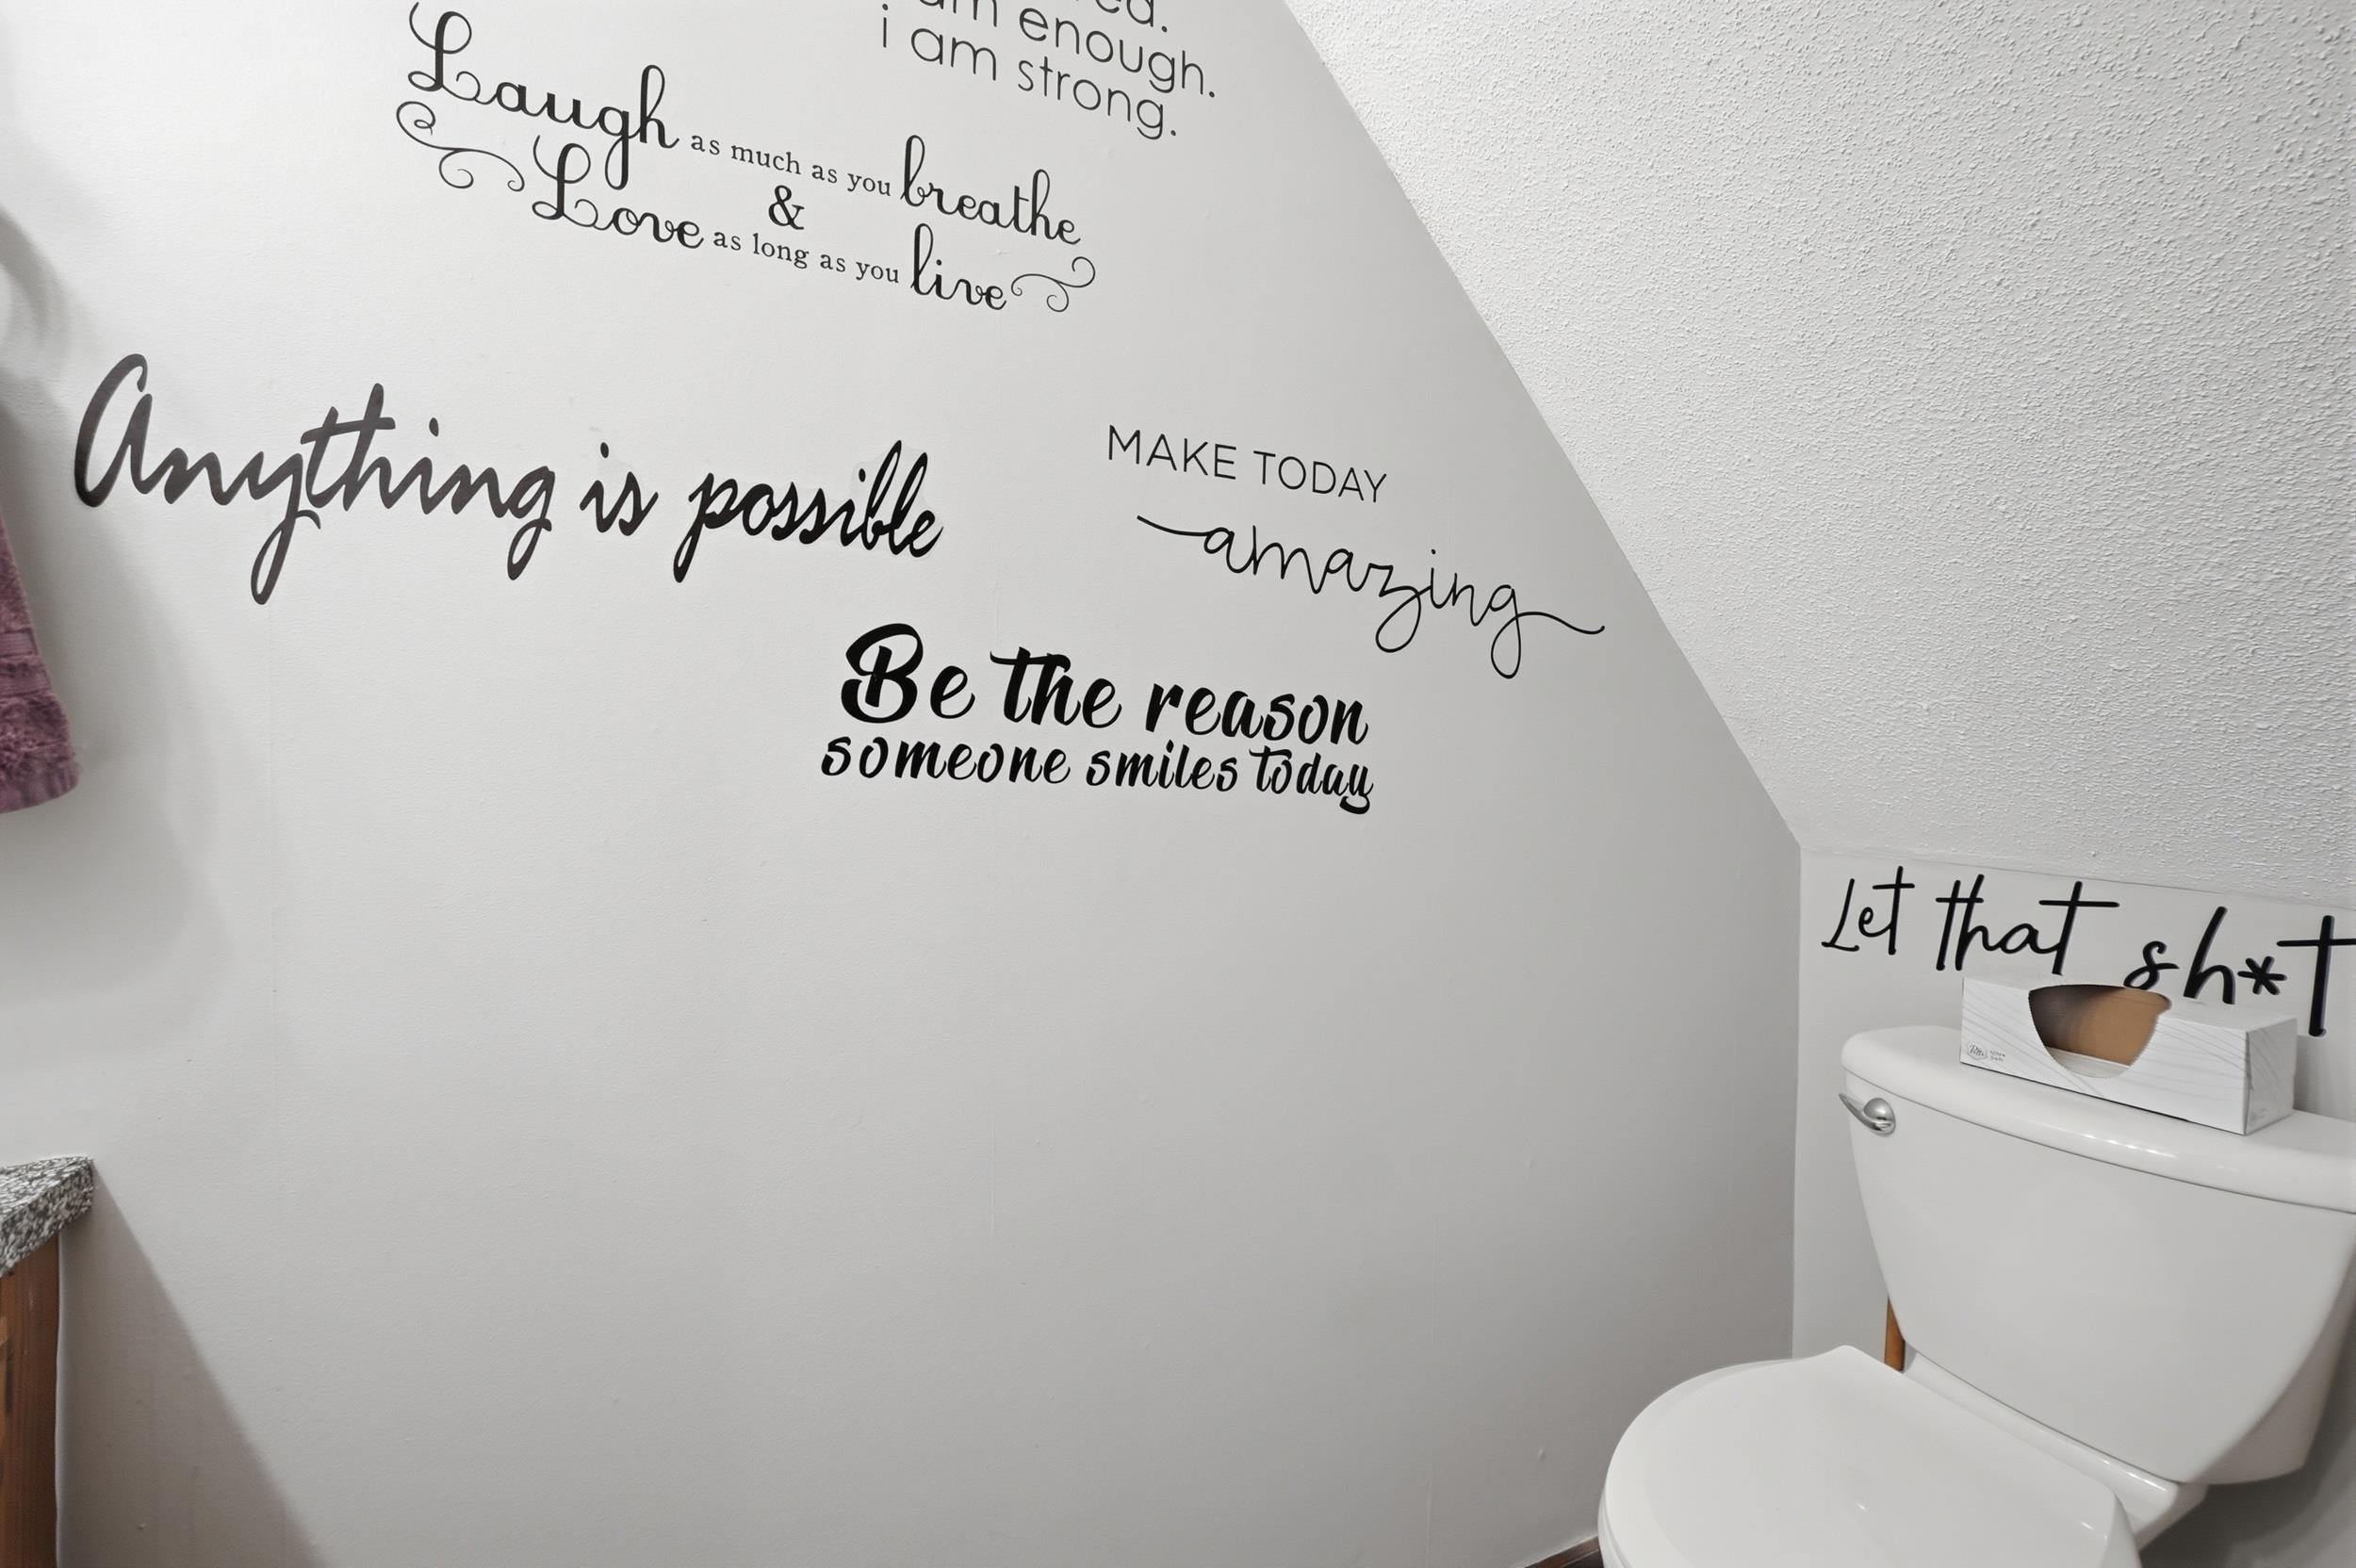 enough.
i am strong.
Laugh as much as you breathe
&
Love as long as you live
Anything is possible
MAKE TODAY
amazing
Be the reason
someone smiles today
Let that sh*t